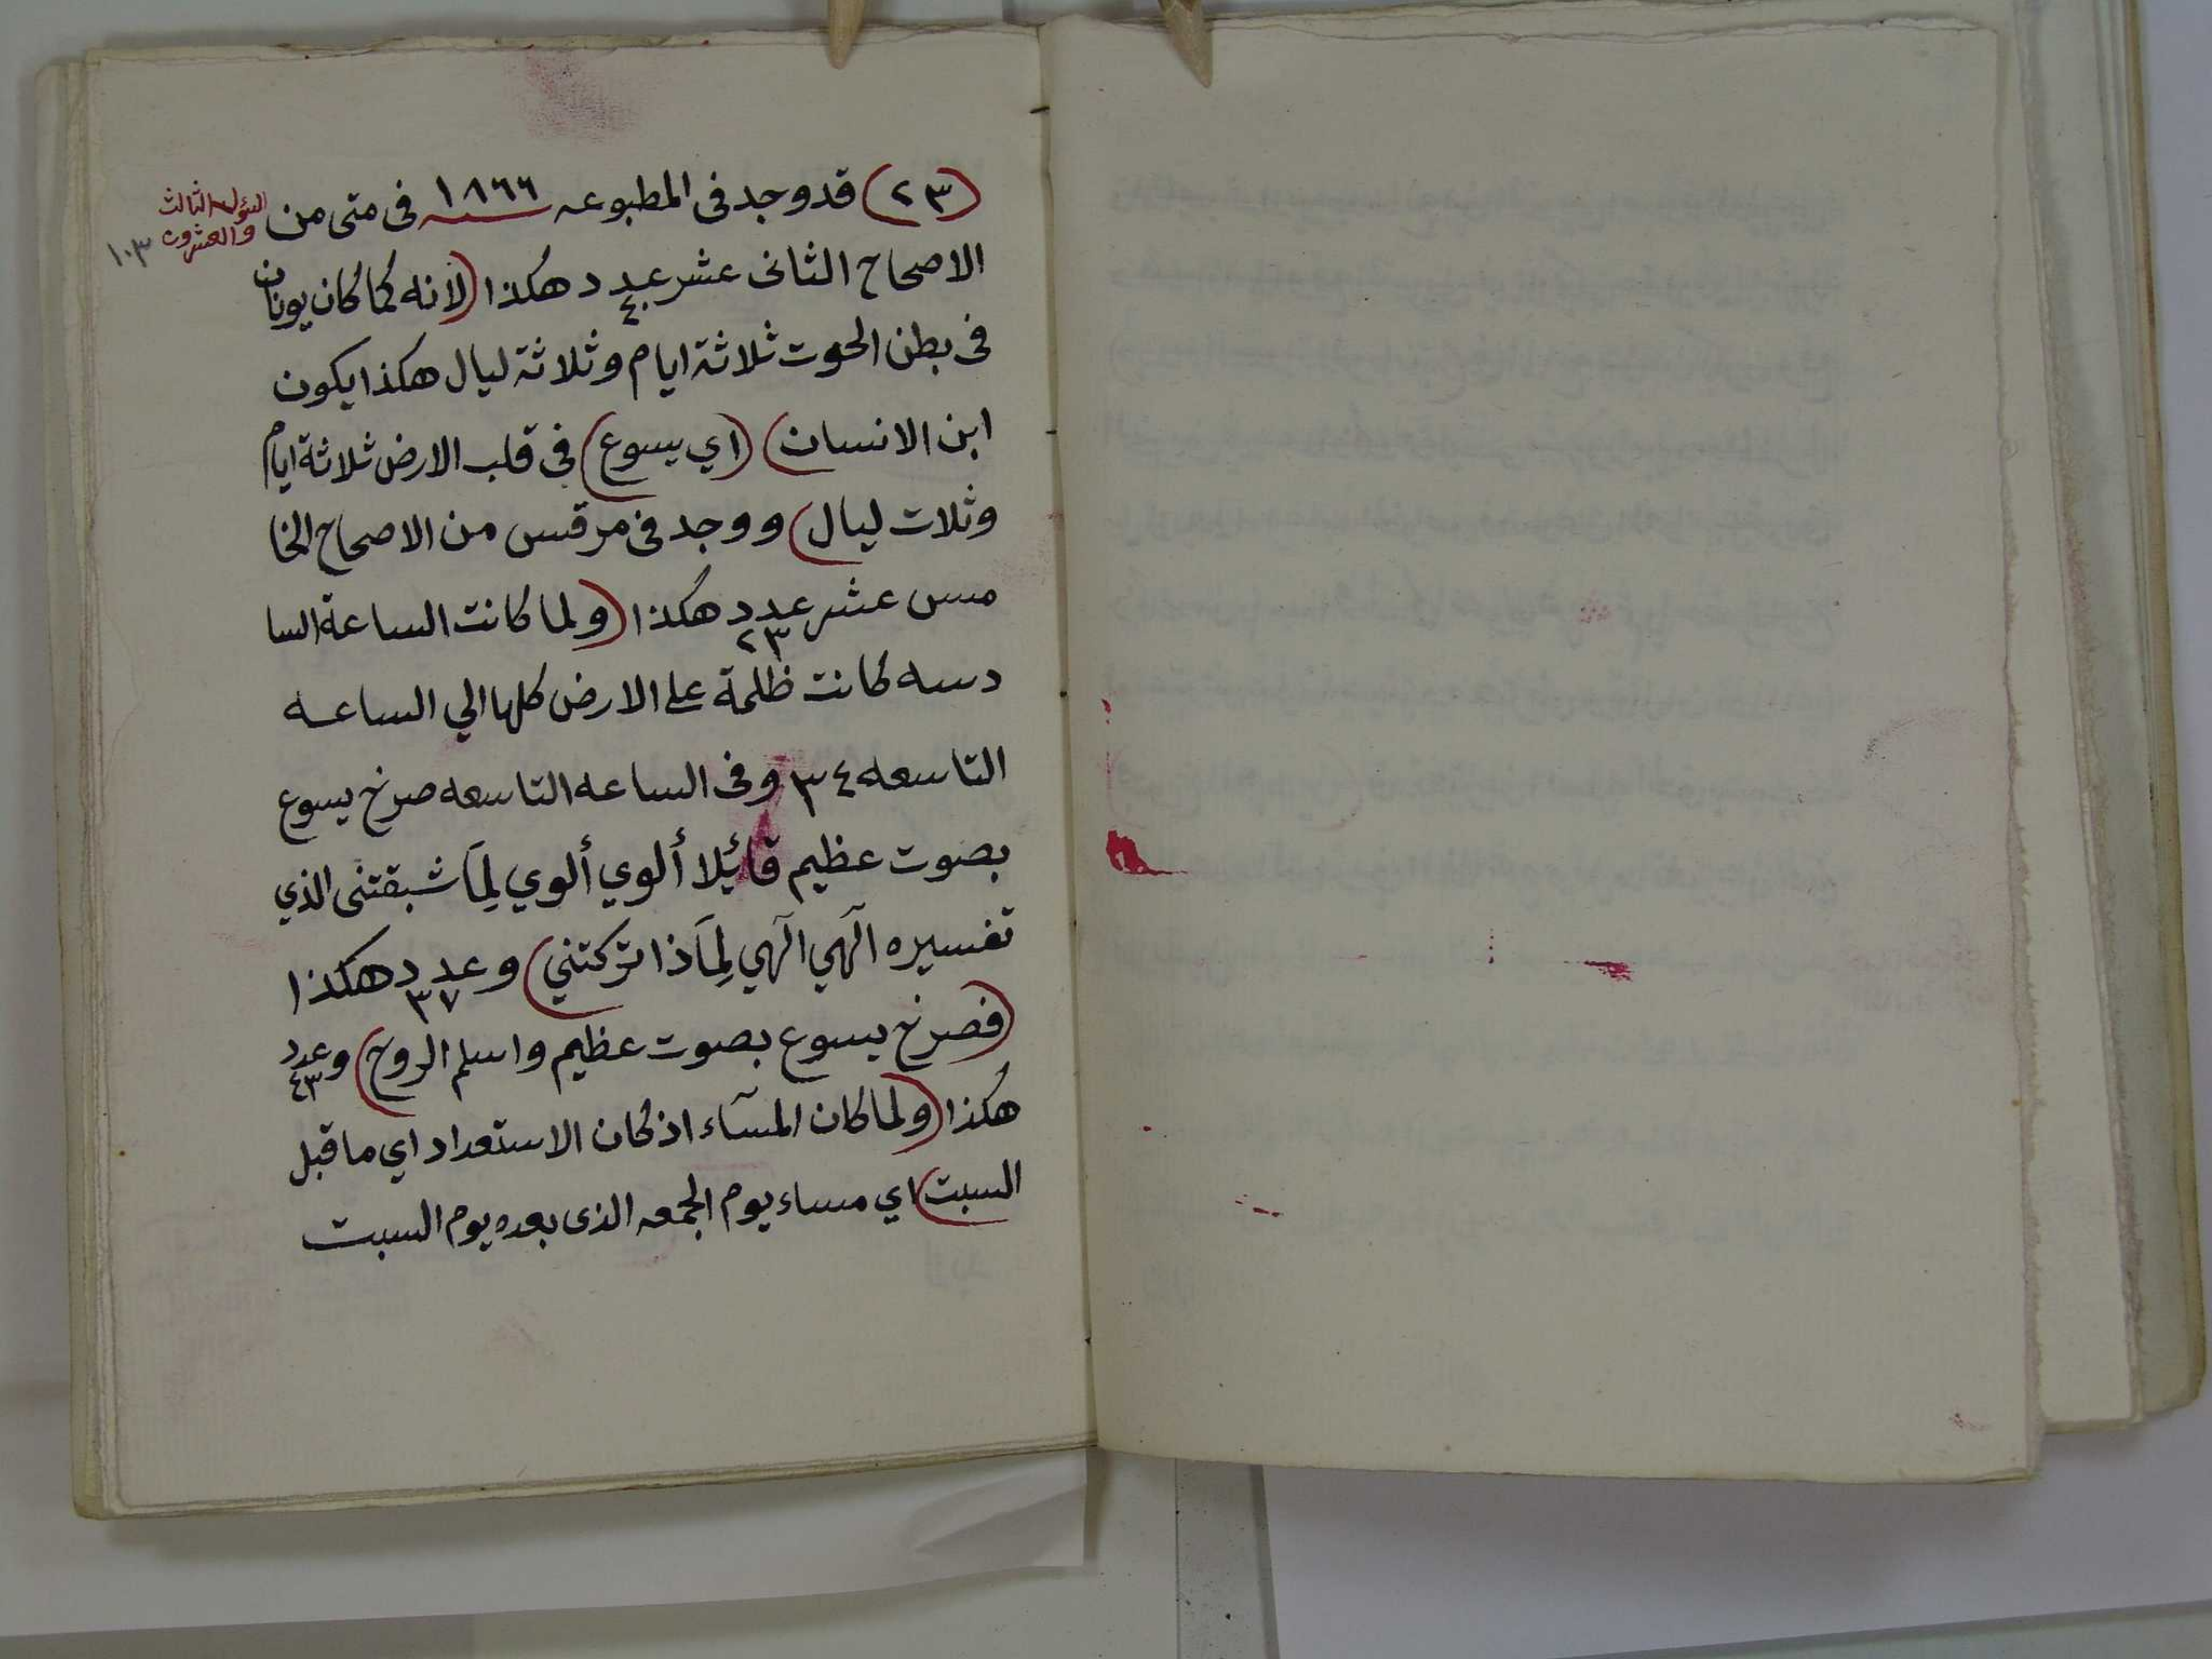 (٢٣) قد وجد فى المطبوعه سنه ١٨٦٦ فى متى من
السؤال الثالث
والعشرون
١٠٣
الاصحاح الثانى عشر عدد ٤٠ هكذا (لانه كما كان يونان
فى بطن الحوت ثلاثة ايام وثلاثة ليال هكذا يكون
ابن الانسان) (اي يسوع) فى قلب الارض ثلاثة ايام
وثلاث ليال) ووجد فى مرقس من الاصحاح الخا
مس عشر عدد ٢٣ هكذا (ولما كانت الساعة السا
دسه كانت ظلمة على الارض كلها الي الساعه
التاسعه ٣٤ وفى الساعه التاسعه صرخ يسوع
بصوت عظيم قائيلا ألوي ألوي لِمَا شبقتنى الذي
تفسيره آلهي آلهي لِمَاذا تركتني) وعدد ٣٧ هكذا
(فصرخ يسوع بصوت عظيم واسلم الروح) وعدد ٤٣
هكذا (ولما كان المسآء اذ كان الاستعداد اي ما قبل
السبت) اي مساء يوم الجمعه الذى بعده يوم السبت